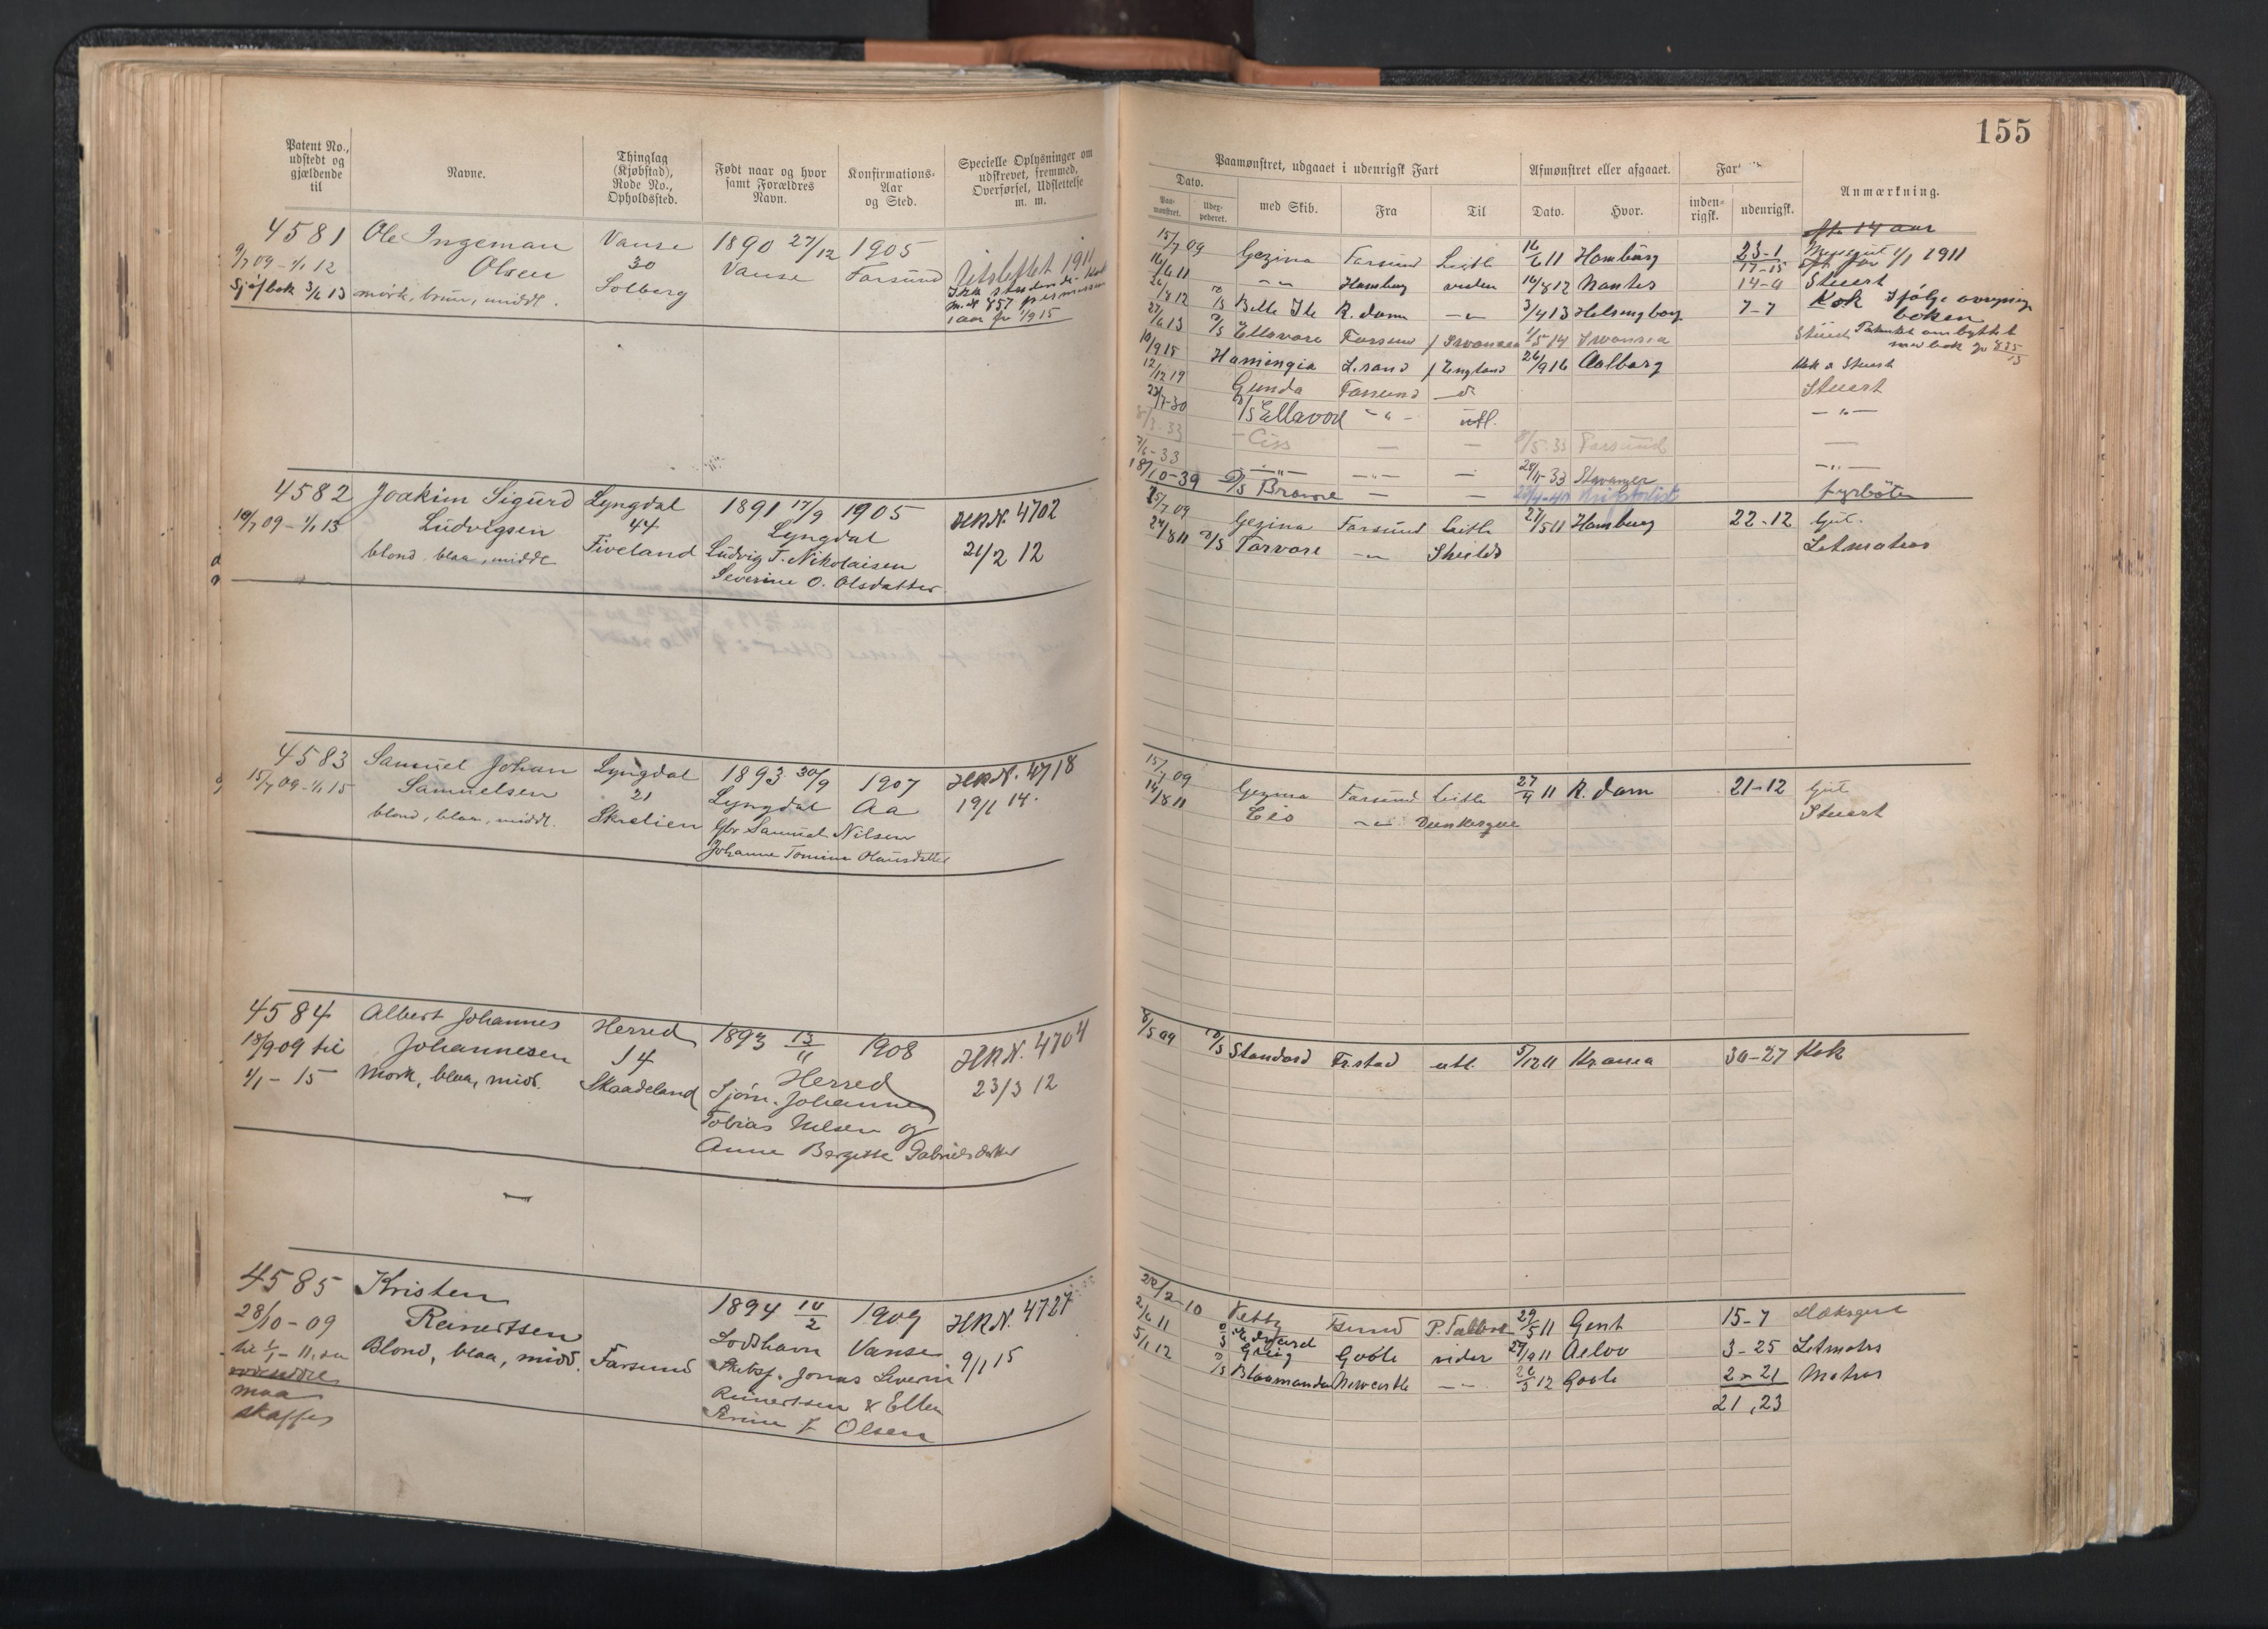 155
Patent No., udstedt og gjældende til
Navne.
Thinglag (Kjøbstad), Rode No., Opholdssted.
Født naar og hvor samt Forældres Navn.
Konfirmations-Aar og Sted.
Specielle Oplysninger om udskrevet, fremmed, Overførsel, Udslettelse m. m.
Paamønstret, udgaaet i udenrigsk Fart
Dato.
Paa-mønstret.
med Skib.
Fra
Til
Afmønstret eller afgaaet.
Dato.
Hvor.
inden-rigsk.
udenrigsk.
Anmærkning.
4581 Ole Ingeman Vanse 1890 27/12 1905
9/7 09 - 1/1 12 Olsen 30 Vanse Farsund Udslettet 1911
Sjøfbok 3/6 13 mörk, brun, middl. Solberg
1 aar fr 1/9 15
15/7 09 Gezina Farsund Leith 16/6 11 Hamburg 23-1 1/1 1911
16/6 11 -"- Hamburg viden 16/8 12 Nantes 14-9 Stuert
26/8 12 D/S Belle Ile R.dam -"- 3/4 13 Helsingborg 7-7 Kok Ifølge
boken
27/6 13 D/S Ellavore Farsund f Swansea 1/5 14 Swansea Stuert Patentet ombyttet
med bok
10/9 15 Hamingia L.sand f England 26/9 16 Aalborg Kok o Stuert
12/12 19 Gunda Farsund -"- Stuert
23/7-30 D/S Ellavore -"- utl. -"-
8/3-33 Ciss — — 8/5-33 Farsund —
7/6-33 -"- -"- — 28/11-33 Stavanger -"-
18/10-39 D/S Bravore — — fyrböter
4582 Joakim Sigurd Lyngdal 1891 17/9 1905 HRN. 4702
10/7 09 - 1/1 13 Ludvigsen 44 Lyngdal 21/2 12
blond, blaa, middl Fiveland Ludvig T. Nikolaisen
Severine O. Olsdatter
15/7 09 Gezina Farsund Leith 27/5 11 Hamburg 22-12 Gut.
24/8 11 D/S Farvore -"- Shields Letmatros
4583 Samuel Johan Lyngdal 1893 30/9 1907 HRN. 4718
15/7 09 - 1/1 15 Samuelsen 21 Lyngdal Aa 19/1 14.
blond, blaa, middl. Skrelien Gbr Samuel Nilsen
Johanne Tomine Olausdatter
15/7 09 Gezina Farsund Leith 27/4 11 R.dam 21-12 Gut
14/8 11 -"- Dunkerque Stuert
4584 Albert Johannes Herred 1893 13/11 1908 HRN. 4704
18/9 09 til Johannesen 14 Herred 23/3 12
1/1 - 15 Mork, blaa, mid. Skaadeland Sjøm. Johannes
Tobias Nilsen og
Anne Bergitte Gabrielsdatter
8/5 09 D/S Standard Fr.stad utl. 5/12 11 Kr.ania 30-27 Kok
4585 Kristen 1894 10/2 1909 HRN. 4727
28/10-09 Reinertsen Lodshavn Vanse 9/1 15
Blond, blaa, midd. Farsund Skibsf. Jonas Severin
maa Reinertsen & Ellen
skaffes Olsen
22/2-10 Farsund 29/5 11 Gent 15-7 Dæksgut
2/6 11 D/S Edvard Grieg Goole vider 27/9 11 3-25 Letmatros
5/1 12 D/S Blaamanden Newcastle -"- 26/3 12 Goole 2-21 Matros
21,23